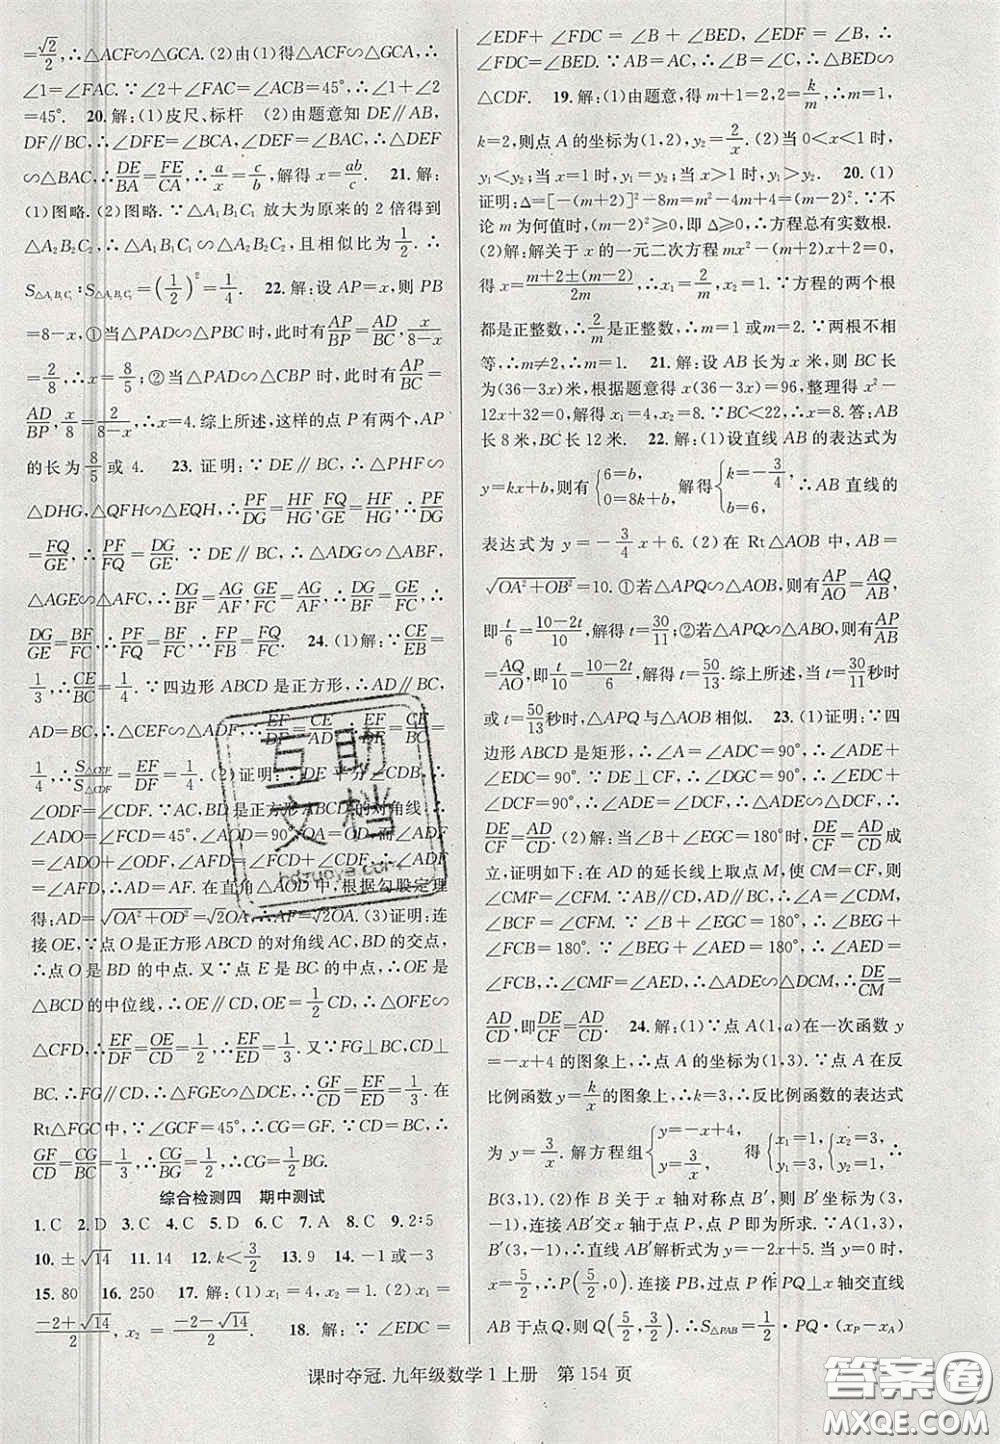 =√2/2,∴△ACF∽△GCA. (2)由(1)得△ACF∽△GCA,∴
∠1=∠FAC. ∵∠2+∠FAC=∠BCA=45°,∴∠1+∠2=
45°. 20. 解:(1)皮尺、标杆 (2)由题意知 DE∥AB,
DF∥BC,∴∠DFE=∠BCA,∠DEF=∠BAC,∴△DEF
∽△BAC,∴DE/BA=FE/CA,∴a/x=c/b,解得 x=ab/c. 21. 解:
(1)图略. (2)图略. ∵△A₁B₁C₁ 放大为原来的 2 倍得到
△A₂B₂C₂,∴△A₁B₁C₁∽△A₂B₂C₂,且相似比为1/2. ∴
S△A₁B₁C₁∶S△A₂B₂C₂=(1/2)²=1/4. 22. 解:设 AP=x,则 PB
=8-x,①当△PAD∽△PBC 时,此时有AP/BP=AD/BC,x/(8-x)
=2/8,∴x=8/5;②当△PAD∽△CBP 时,此时有AP/BC=
AD/BP,x/8=2/(8-x),∴x=4. 综上所述,这样的点 P 有两个,AP
的长为8/5或 4. 23. 证明:∵DE∥BC,∴△PHF∽
△DHG,△QFH∽△EQH,∴PF/DG=HF/HG,FQ/GE=HF/HG,∴PF/DG=
FQ/GE,∴PF/FQ=DG/GE. ∵DE∥BC,∴△ADG∽△ABF,
△AGE∽△AFC,∴DG/BF=AG/AF,GE/FC=AG/AF,∴DG/BF=GE/FC,∴
DG/GE=BF/FC,∴PF/FQ=BF/FC,∴FP/BF=FQ/FC. 24. (1)解:∵CE/EB=
1/3,∴CE/BC=1/4. ∵四边形 ABCD 是正方形,∴AD∥BC,
AD=BC,∴△CEF∽△ADF,∴EF/DF=CE/AD,∴EF/DF=CE/BC=
1/4,∴S△CEF/S△CDF=EF/DF=1/4. (2)证明:∵DE 平分∠CDB,∴
∠ODF=∠CDF. ∵AC,BD 是正方形 ABCD 的对角线,∴
∠ADO=∠FCD=45°,∠AOD=90°,OA=OD. ∵∠ADF=
∠ADO+∠ODF,∠AFD=∠FCD+∠CDF,∴∠ADF=
∠AFD,∴AD=AF. 在直角△AOD 中,根据勾股定理
得:AD=√(OA²+OD²)=√2OA,∴AF=√2OA. (3)证明:连
接 OE,∵点 O 是正方形 ABCD 的对角线 AC,BD 的交点,
∴点 O 是 BD 的中点. 又∵点 E 是 BC 的中点,∴OE 是
△BCD 的中位线,∴OE∥CD,OE=1/2CD,∴△OFE∽
△CFD,∴EF/DF=OE/CD=1/2,∴EF/ED=1/3. 又∵FG⊥BC,CD⊥
BC,∴FG∥CD,∴△FGE∽△DCE,∴GF/CD=EF/ED=1/3. 在
Rt△FGC 中,∵∠GCF=45°,∴CG=GF. 又∵CD=BC,∴
GF/CD=CG/BC=1/3,∴CG/BG=1/2,∴CG=1/2BG.
综合检测四 期中测试
1. C 2. D 3. C 4. C 5. C 6. D 7. A 8. C 9. 2∶5
10. ±√14 11. 14 12. k<3/2 13. 9 14. -1 或 -3
15. 80 16. 250 17. 解:(1)x₁=4,x₂=1. (2)x₁=
(-2+√14)/2,x₂=(-2-√14)/2. 18. 解:∵∠EDC=
∠EDF+∠FDC=∠B+∠BED,又∵∠EDF=∠B,∴
∠FDC=∠BED,∵AB=AC,∴∠B=∠C,∴△BDE
∽△CDF. 19. 解:(1)由题意,得 m+1=2,2=k/m,∴m=1,
k=2,则点 A 的坐标为(1,2),y₂=2/x. (2)当 0<x<1 时,
y₁<y₂;当 x=1 时,y₁=y₂;当 x>1 时,y₁>y₂. 20. (1)
证明:Δ=[-(m+2)]²-8m=m²-4m+4=(m-2)². ∵不
论 m 为何值时,(m-2)²≥0,即 Δ≥0,∴方程总有实数根.
(2)解:解关于 x 的一元二次方程 mx²-(m+2)x+2=0,
得 x=(m+2±(m-2))/2m,∴x₁=2/m,x₂=1. ∵方程的两个根
都是正整数,∴2/m是正整数,∴m=1 或 m=2. ∵两根不相
等,∴m≠2,∴m=1. 21. 解:设 AB 长为 x 米,则 BC 长
为(36-3x)米,根据题意得 x(36-3x)=96,整理得 x²-
12x+32=0,解得 x₁=4,x₂=8. ∵BC<22,∴x=8. 答:AB
长 8 米,BC 长 12 米. 22. 解:(1)设直线 AB 的表达式为
y=kx+b,则有{6=b,0=8k+b,解得{k=-3/4,b=6,∴AB 直线的
表达式为 y=-3/4x+6. (2)在 Rt△AOB 中,AB=
√(OA²+OB²)=10. ①若△APQ∽△AOB,则有AP/AO=AQ/AB,
即t/6=(10-2t)/10,解得 t=30/11;②若△APQ∽△ABO,则有AP/AB
=AQ/AO,即t/10=(10-2t)/6,解得 t=50/13. 综上所述,当 t=30/11秒时
或 t=50/13秒时,△APQ 与△AOB 相似. 23. (1)证明:∵四
边形 ABCD 是矩形,∴∠A=∠ADC=90°,∴∠ADE+
∠EDC=90°. ∵DE⊥CF,∴∠DGC=90°,∠EDC+
∠DCF=90°,∴∠ADE=∠DCF,∴△ADE∽△DCF,∴
DE/CF=AD/CD. (2)解:当∠B+∠EGC=180°时,DE/CF=AD/CD成
立,证明如下:在 AD 的延长线上取点 M,使 CM=CF,则
∠CMF=∠CFM. ∵AB∥CD,∴∠A=∠CDM. ∵AD∥
BC,∴∠BCF=∠CFM. ∵∠B+∠EGC=180°,∴∠BEG
+∠FCB=180°. ∵∠BEG+∠AED=180°,∴∠AED=
∠FCB,∴∠CMF=∠AED,∴△ADE∽△DCM,∴DE/CM=
AD/CD,即DE/CF=AD/CD. 24. 解:(1)∵点 A(1,a)在一次函数 y
=-x+4 的图象上,∴点 A 的坐标为(1,3). ∵点 A 在反
比例函数 y=k/x的图象上,∴k=3,∴反比例函数的表达式
为 y=3/x. 解方程组{y=-x+4,y=3/x,得{x₁=1,y₁=3,{x₂=3,y₂=1,∴
B(3,1). (2)作 B 关于 x 轴对称点 B′,则 B′坐标为(3,
-1),连接 AB′交 x 轴于点 P,则点 P 即为所求. ∵A(1,3),
B′(3,-1),∴直线 AB′解析式为 y=-2x+5. 当 y=0 时,
x=5/2,∴P(5/2,0). 连接 PB,过点 P 作 PQ⊥x 轴交直线
AB 于点 Q,则 Q(5/2,3/2),∴S△PAB=1/2·PQ·(xP-xA)
互助
文档
hdzuoye.com
课时夺冠. 九年级数学 1 上册 第 154 页
答案圈
MXQE.COM